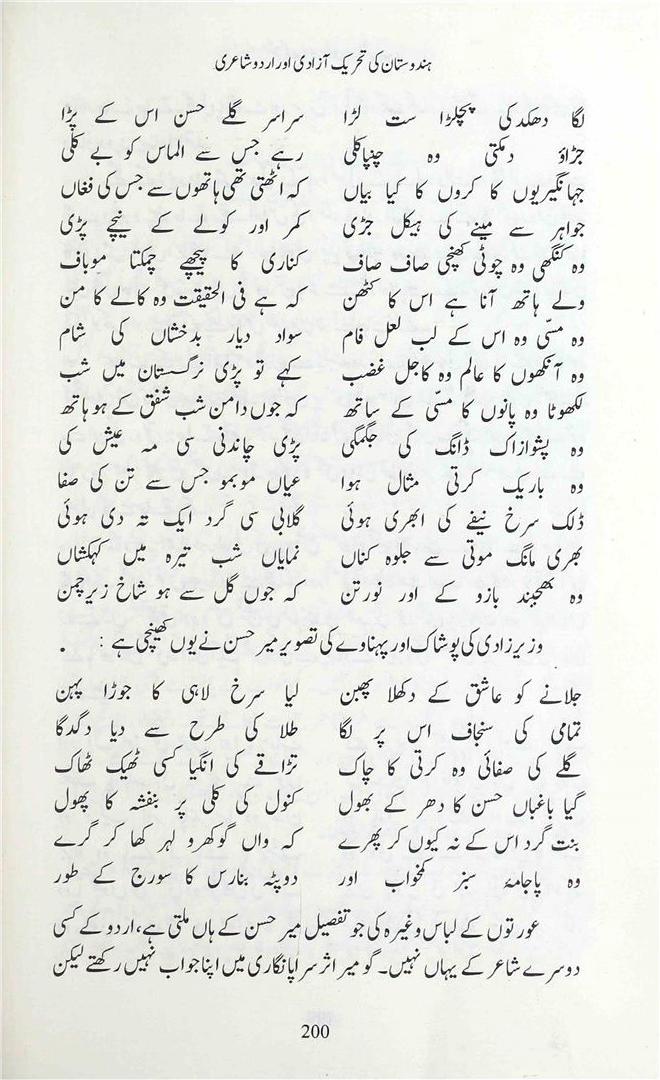 ہندوستان کی تحریک آزادی اور اردو شاعری
لگا دھکدکی پچلڑا ست لڑا سراسر گلے حسن اس کے پڑا
جڑاؤ دمکتی وہ چنپاکلی رہے جس سے الماس کو بے کلی
جہانگیریوں کا کروں کا کیا بیاں کہ اٹھتی تھی ہاتھوں سے جس کی فغاں
جواہر سے مینے کی ہیکل جڑی کمر اور کولے کے نیچے پڑی
وہ کنگھی وہ چوٹی کھنچی صاف صاف کناری کا پیچھے چمکتا موباف
ولے ہاتھ آنا ہے اس کا کٹھن کہ ہے فی الحقیقت وہ کالے کا من
وہ مسّی وہ اس کے لب لعل فام سواد دیار بدخشاں کی شام
وہ آنکھوں کا عالم وہ کاجل غضب کہے تو پڑی نرگستان میں شب
لکھوٹا وہ پانوں کا مسّی کے ساتھ کہ جوں دامن شب شفق کے ہو ہاتھ
وہ پشواز اک ڈانگ کی جگمگی پڑی چاندنی سی مہ عیش کی
وہ باریک کرتی مثال ہوا عیاں موبمو جس سے تن کی صفا
ڈلک سرخ نیفے کی ابھری ہوئی گلابی سی گرد ایک تہ دی ہوئی
بھری مانگ موتی سے جلوہ کناں نمایاں شب تیرہ میں کہکشاں
وہ بھجبند بازو کے اور نورتن کہ جوں گل سے ہو شاخ زیر چمن
وزیرزادی کی پوشاک اور پہناوے کی تصویر میر حسن نے یوں کھینچی ہے :
جلانے کو عاشق کے دکھلا پھبن لیا سرخ لاہی کا جوڑا پہن
تمامی کی سنجاف اس پر لگا طلا کی طرح سے دیا دگدگا
گلے کی صفائی وہ کرتی کا چاک تڑاقے کی انگیا کسی ٹھیک ٹھاک
گیا باغباں حسن کا دھر کے بھول کنول کی کلی پر بنفشہ کا پھول
بنت گرد اس کے نہ کیوں کر پھرے کہ واں گوکھرو لہر کھا کر گرے
وہ پاجامۂ سبز کمخواب اور دوپٹہ بنارس کا سورج کے طور
عورتوں کے لباس وغیرہ کی جو تفصیل میر حسن کے ہاں ملتی ہے، اردو کے کسی
دوسرے شاعر کے یہاں نہیں۔ گو میر اثر سراپا نگاری میں اپنا جواب نہیں رکھتے لیکن
200